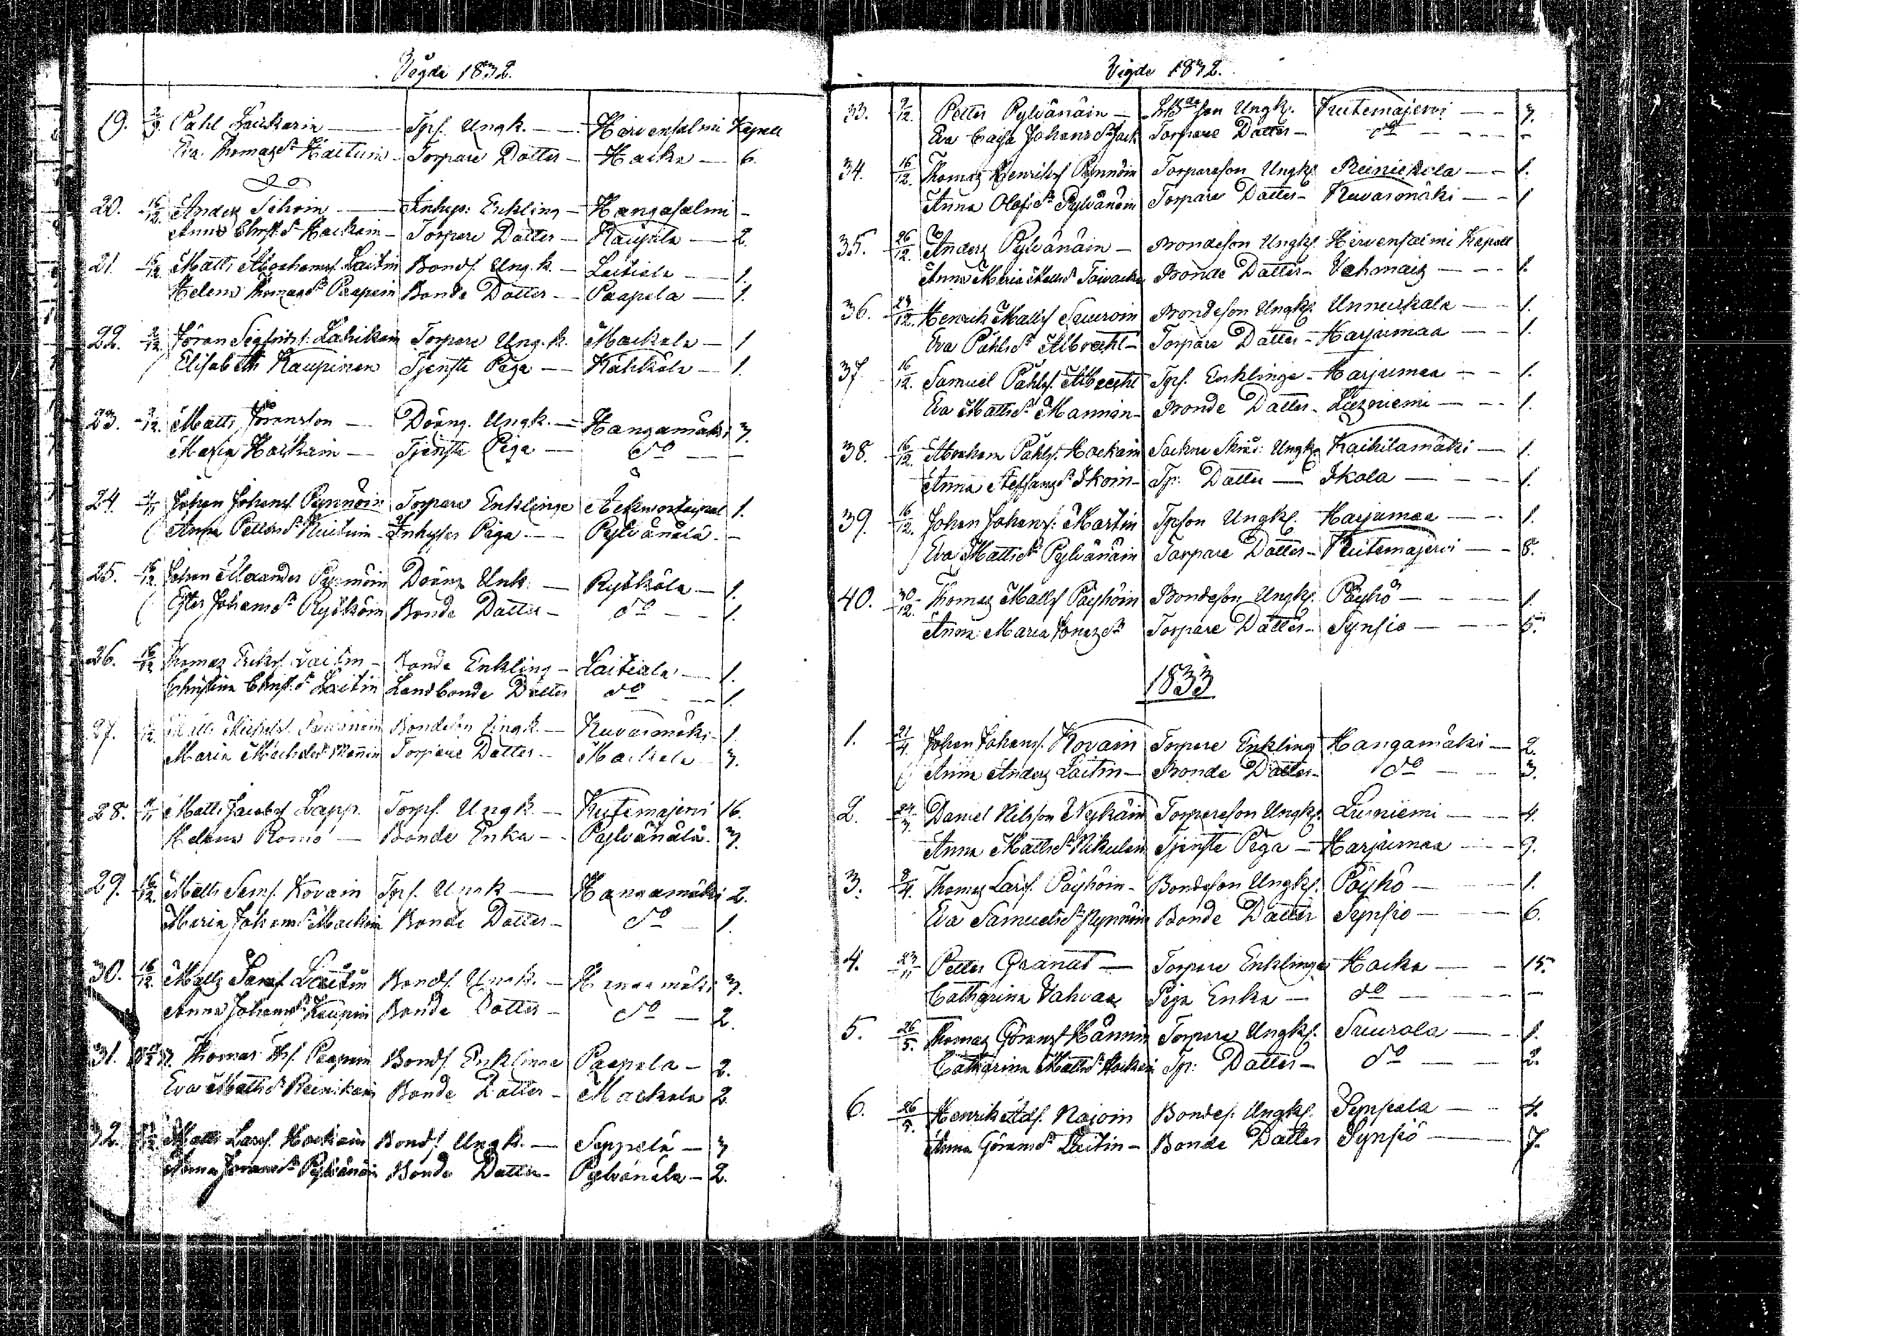 Vigde 1832.
19. 2/9 Påhl Laukarin — Tpf. Ungk. — Hirvensalmi Kapell
Eva Thomasdr Hartuin — Torpare Dotter — Hacka — 6.
20. 16/12 Anders Tihoin — Inhys: Enkling — Kangasalmi —
Anna Christ.dr Hackain — Torpare Dotter — Kaupila — 2.
21. 16/12 Matts Abrahams. Laitin Bondf. Ungk. — Laitiala — 1.
Helena Thomasdr Paapain Bonde Dotter — Paapela — 1.
22. 2/12 Jöran Sigfrids. Laukain Torpare Ungk. Mackala — 1
Elisabeth Kaupinen Tjenste Piga — Kälkäla — 1.
23. 2/12 Matts Jöransson — Dräng. Ungk. — Kangamäki 3.
Maria Hackain — Tjenste Piga — do —
24. Johan Johans. Pynnöin Torpare Enkling 1.
Anna Pettersdr Kuituin Inhyses Piga — Pylvänälä —
25. 16/12 Johan Alexander Pynnöin Dräng Unk. — Ryökäla — 1.
Ester Johansdr Ryököin Bonde Dotter — do — 1.
26. 16/12 Thomas Eriks. Laitin — Bonde Enkling — Laitiala — 1.
Christina Christ.dr Laitin Landbonde Dotter do — 1.
27. Matts Michels. Bondeson Ungk. — Kuvasmäki 1.
Maria Michelsdr Torpare Dotter — Mackala 3.
28. Matts Jacobs. Lapp. Torpf. Ungk. — Kutemajervi 16.
Helena Romo — Bonde Enka — Pylvänälä. 3.
29. 16/12 Matts Sams. Kovain Tpf. Ungk — Kangamäki 2.
Maria Johansdr Mackoin Bonde Dotter — do — 1.
30. 16/12 Matts Laitin Bondf. Ungk. — Kangamäki 3.
Anna Johansdr Kaupin Bonde Dotter — do — 2.
31. Thomas Paapain Bondf. Enkling Paapela — 2.
Eva Mattsdr Reinikain Bonde Dotter — Mackala 2
32. Matts Lars. Hackain Bondf. Ungk. — Seppelä — 3
Anna Jöransdr Pylvänäin Bonde Dotter — Pylvänäla — 2.
Vigde 1832.
33. 2/12 Petter Pylvänäin — son Ungk. Kutemajervi — 3.
Eva Caisa Johansdr Torpare Dotter — do —
34. 16/12 Thomas Henriks. Pynnöin Torpareson Ungk. Reinickala — 1.
Anna Olofsdr Pylvänäin Torpare Dotter — Kuvasmäki — 1
35. 26/12 Anders Pylvänäin — Bondeson Ungk. Hirvensalmi Kapell
Anna Maria Mattsdr Bonde Dotter — Vehmais — 1.
36. 23/12 Henrik Matts. Suuroin Bondeson Ungk. Unnukala — 1.
Eva Påhlsdr Albrecht — Torpare Dotter — Harjumaa — 1
37 16/12. Samuel Påhls. Albrecht Tpf. Enkling — Harjumaa — 1.
Eva Mattsdr Mannin — Bonde Dotter — — 1.
38. 16/12. Abraham Påhls. Hackain Sockne Skräd: Ungk. Kaihilamäki — 1.
Anna Steffansdr Ikoin — Tp: Dotter — Ikola — 1.
39. 16/12 Johan Johans. Martin Tpson Ungk. Harjumaa — 1.
Eva Mattsdr Pylvänäin Torpare Dotter — Kutemajervi — 8.
40. 30/12. Thomas Matts. Päyhöin Bondeson Ungk. Päyhö — 1.
Anna Maria Jonasdr Torpare Dotter — Synsiö — 5.
1833
1. 21/4. Johan Johans. Kovain Torpare Enkling Kangamäki — 2.
Anna Anders Laitin — Bonde Dotter — do — 3.
2. 24/3. Daniel Nilsson Nykäin Torpareson Ungk. Liusniemi — 4.
Anna Mattsdr Nikulain Tjenste Piga — Harjumaa — 9.
3. 8/4. Thomas Lars. Päyhöin — Bondeson Ungk. Päyhö — 1.
Eva Samuelsdr Pynnöin Bonde Dotter Synsiö — 6.
4. 23/11 Petter Granat — Torpare Enkling Hacka — 15.
Catharina Vahvas Piga Enka — do —
5. 26/5. Thomas Görans. Hännin Torpare Ungk. Suurola — 1.
Catharina Mattsdr Hackain Tp: Dotter — do — 2.
6. 26/5. Henrik Adf. Noroin Bondef. Ungk. Sepsiala — 4.
Anna Göransdr Laitin — Bonde Dotter Synsiö — 7.